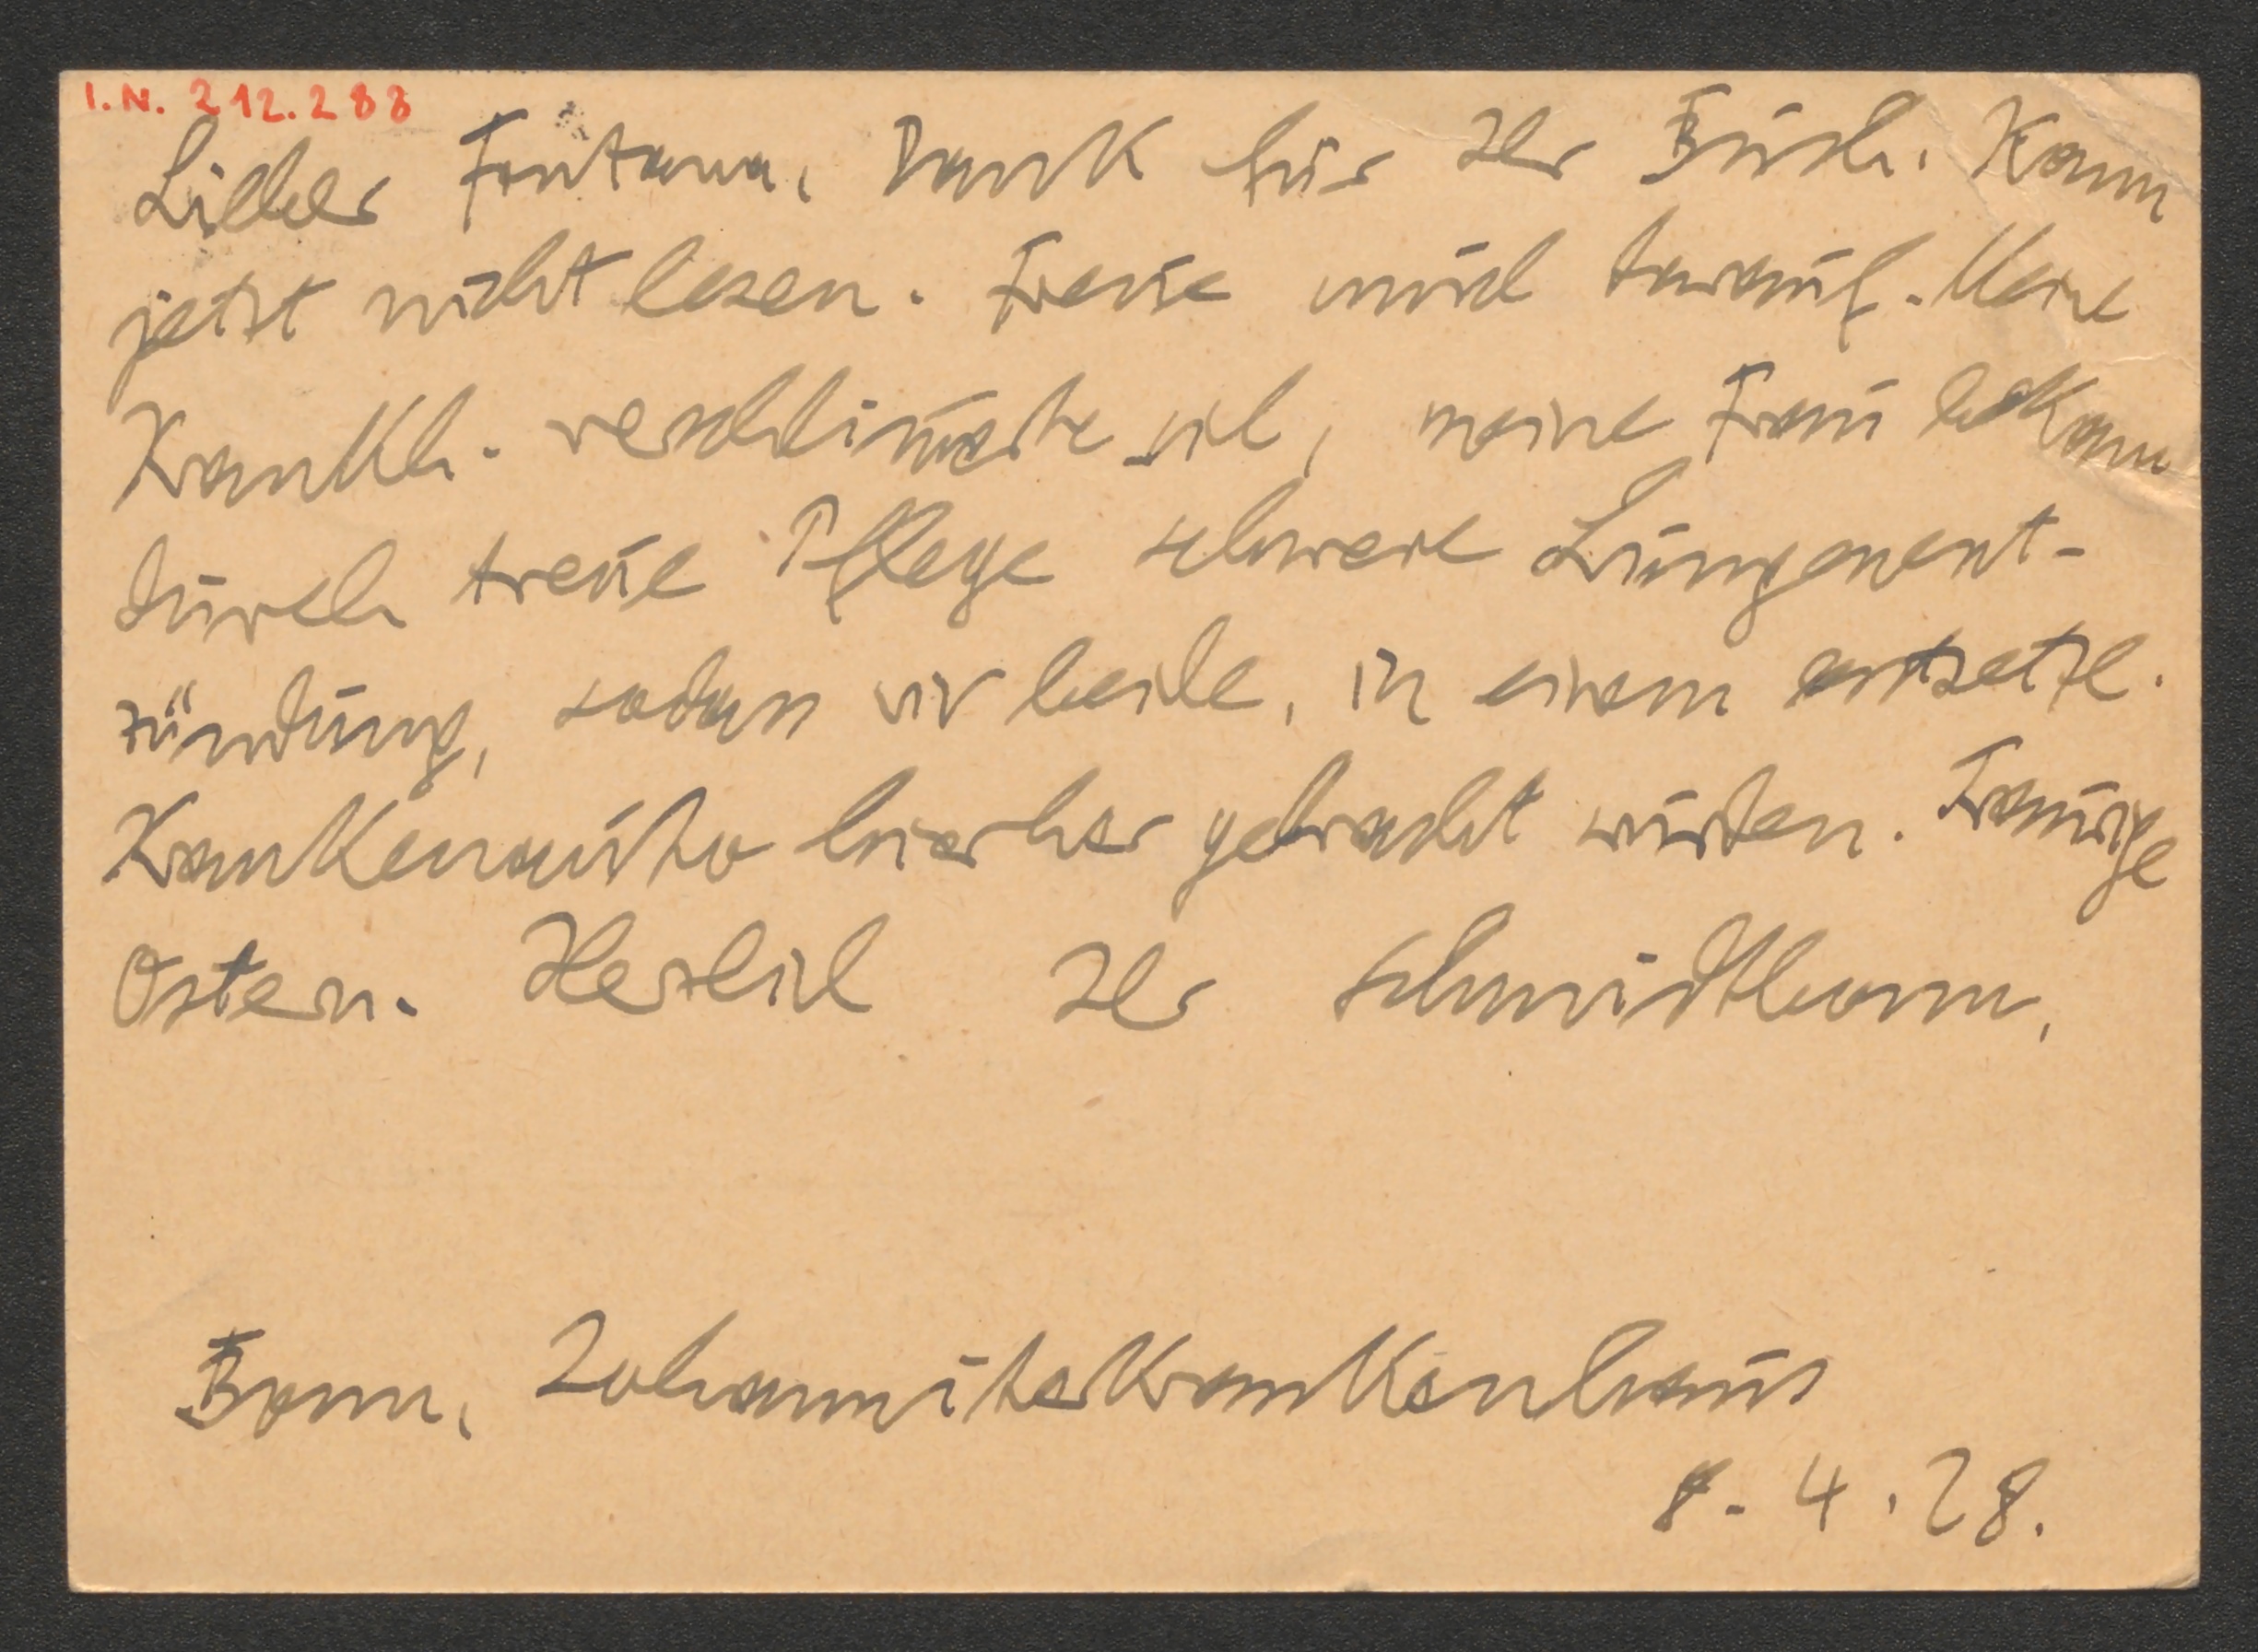 I.N. 212.288
Lieber Fontana, Dank für Ihr Buch. Kann
jetzt nicht lesen. Freue mich darauf. Meine
Krankh. verschlimmerte sich, meine Frau bekam
durch treue Pflege schwere Lungenent-
zündung, sodass wir beide, in einem entsetzl.
Krankenauto hierher gebracht wurden. Traurige
Ostern. Herzlich Ihr Schmidtbonn.
Bonn, Johanniterkrankenhaus
8.4.28.